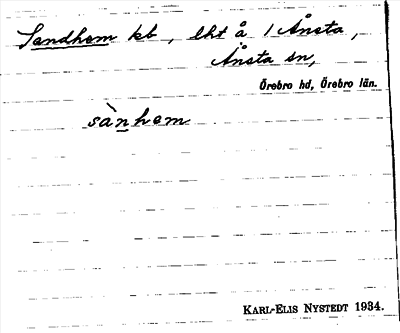 Sandhem kb, lht å 1 Ånsta,
Ånsta sn,
Örebro hd, Örebro län.
sànhem
KARL-ELIS NYSTEDT 1934.